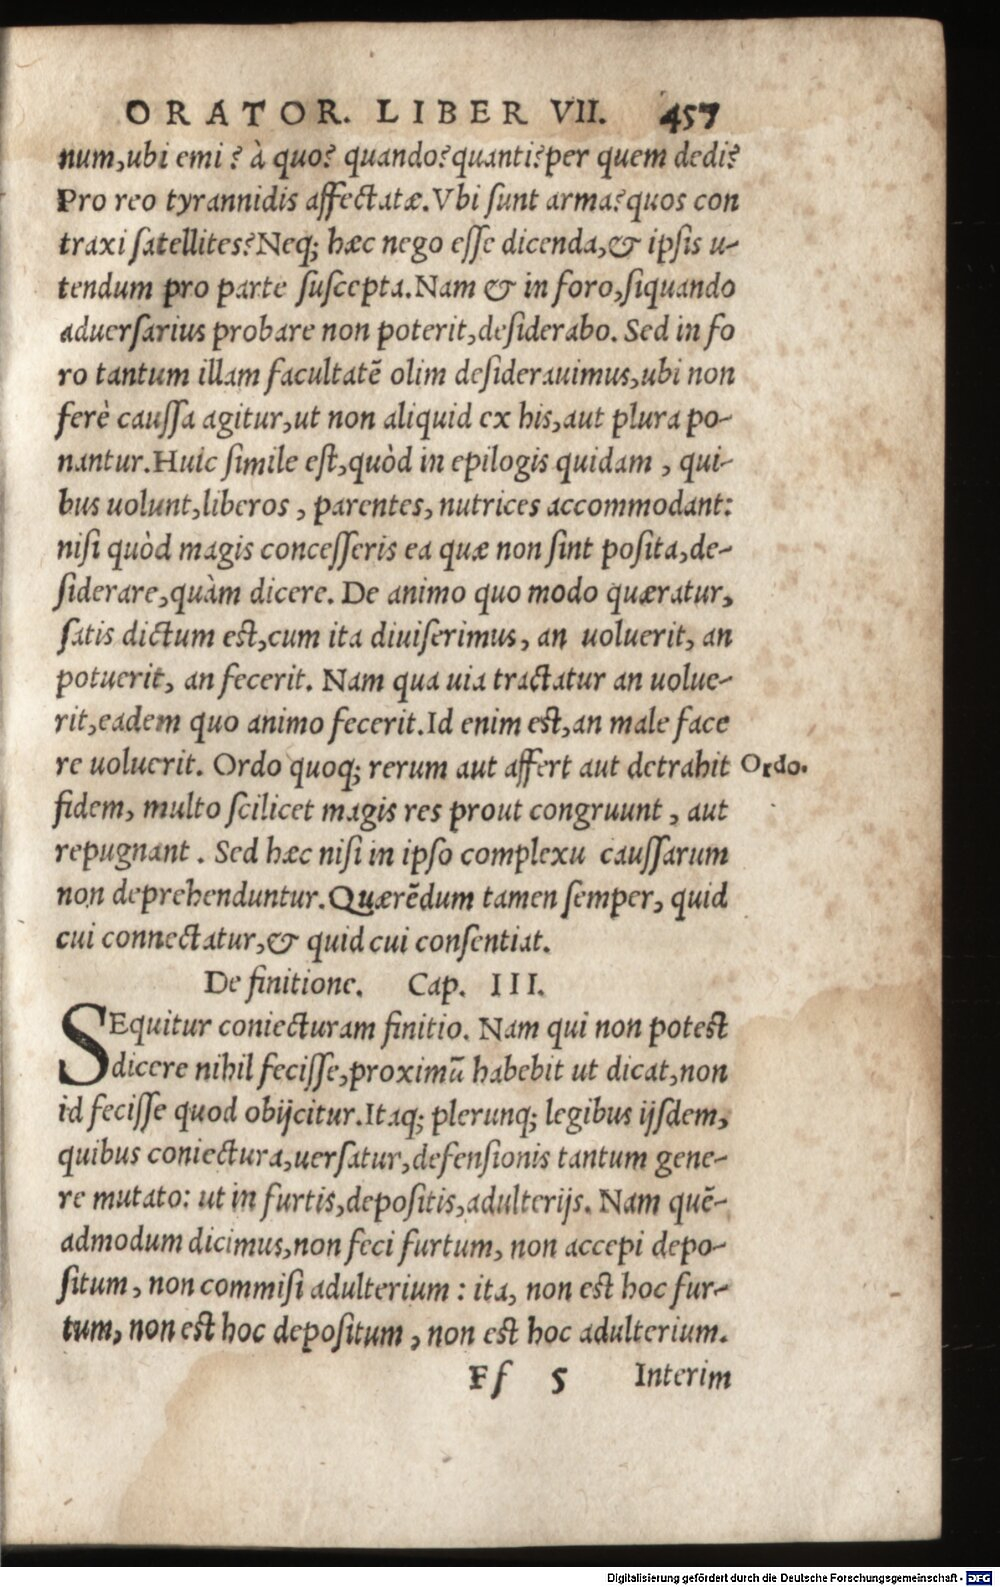 ORATOR. LIBER VII. 457
num, ubi emi? à quo? quando? quanti? per quem dedi?
Pro reo tyrannidis affectatæ. Vbi sunt arma? quos con
traxi satellites? Neq; hæc nego esse dicenda, & ipsis u-
tendum pro parte suscepta. Nam & in foro, siquando
aduersarius probare non poterit, desiderabo. Sed in fo
ro tantum illam facultatē olim desiderauimus, ubi non
ferè caussa agitur, ut non aliquid ex his, aut plura po-
nantur. Huic simile est, quòd in epilogis quidam, qui-
bus uolunt, liberos, parentes, nutrices accommodant:
nisi quòd magis concesseris ea quæ non sint posita, de-
siderare, quàm dicere. De animo quo modo quæratur,
satis dictum est, cum ita diuiserimus, an uoluerit, an
potuerit, an fecerit. Nam qua uia tractatur an uolue-
rit, eadem quo animo fecerit. Id enim est, an male face
re uoluerit. Ordo quoq; rerum aut affert aut detrahit Ordo.
fidem, multo scilicet magis res prout congruunt, aut
repugnant. Sed hæc nisi in ipso complexu caussarum
non deprehenduntur. Quærēdum tamen semper, quid
cui connectatur, & quid cui consentiat.
De finitione. Cap. III.
SEquitur coniecturam finitio. Nam qui non potest
dicere nihil fecisse, proximū habebit ut dicat, non
id fecisse quod obijcitur. Itaq; plerunq; legibus ijsdem,
quibus coniectura, uersatur, defensionis tantum gene-
re mutato: ut in furtis, depositis, adulterijs. Nam quē-
admodum dicimus, non feci furtum, non accepi depo-
situm, non commisi adulterium: ita, non est hoc fur-
tum, non est hoc depositum, non est hoc adulterium.
Ff 5 Interim
Digitalisierung gefördert durch die Deutsche Forschungsgemeinschaft - DFG